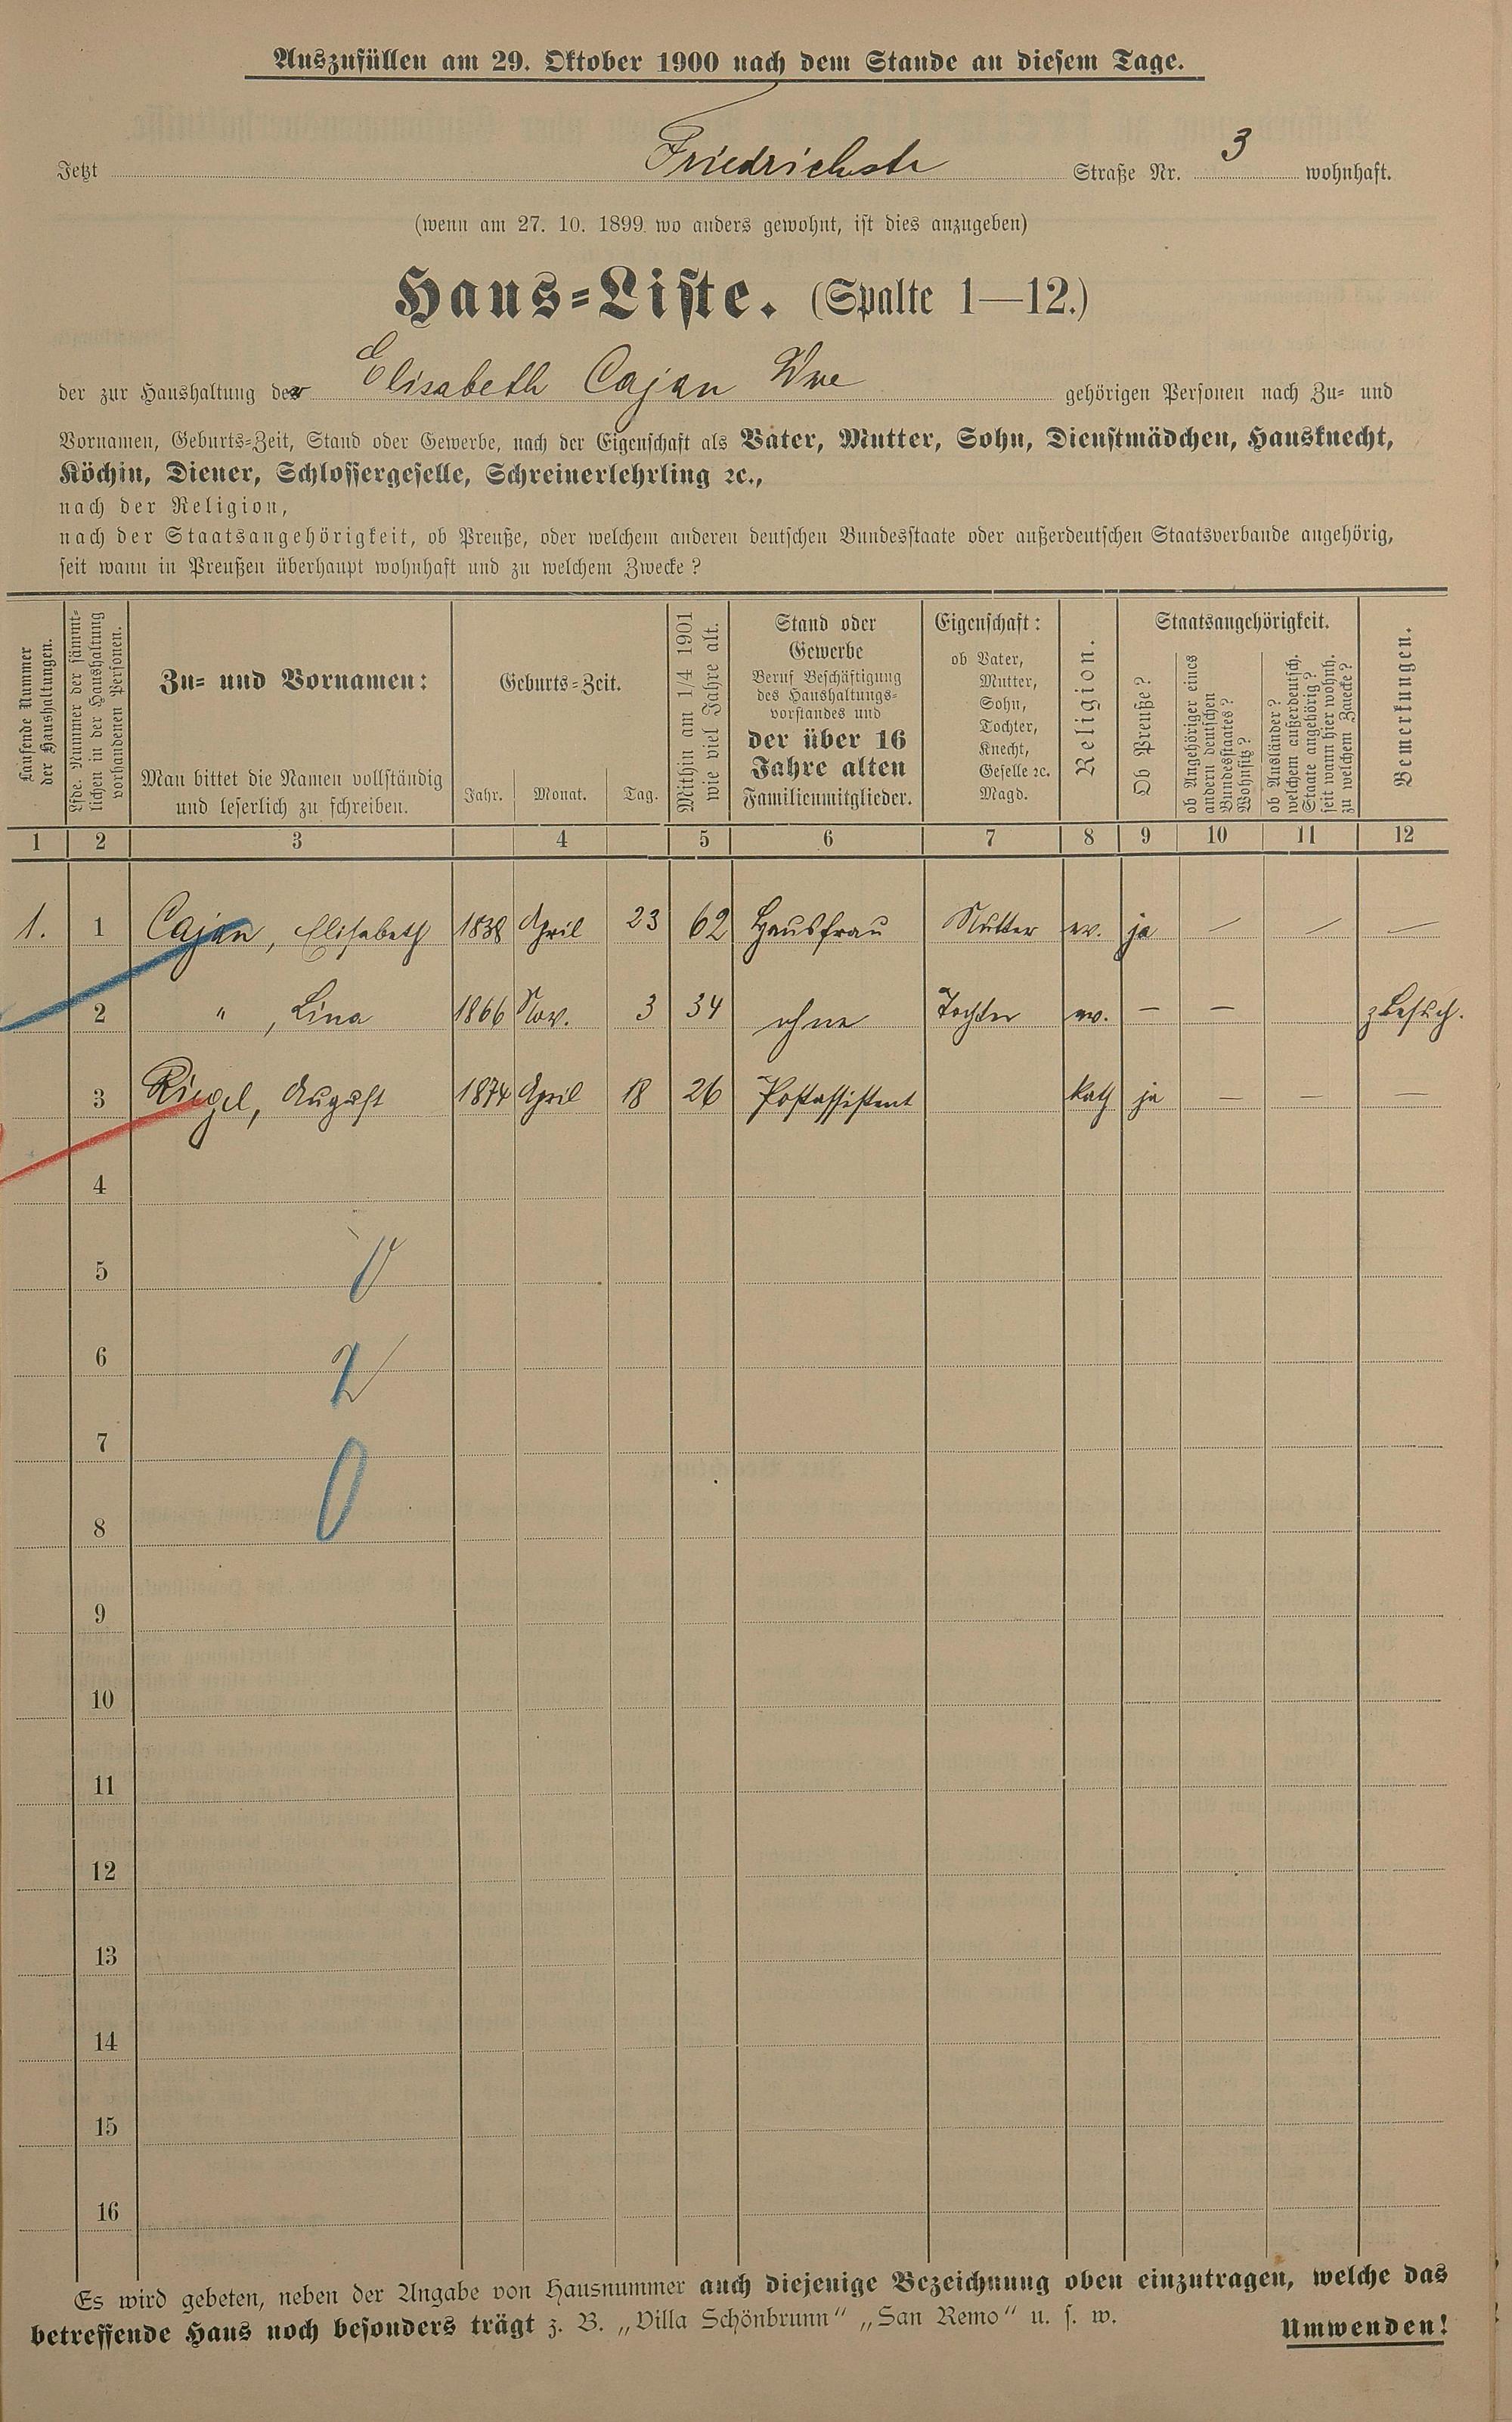 Auszufüllen am 29. Oktober 1900 nach dem Stande an diesem Tage.
Jetzt Friedrichstr Straße Nr. 3 wohnhaft.
(wenn am 27. 10. 1899 wo anders gewohnt, ist dies anzugeben)
Haus=Liste. (Spalte 1—12.)
der zur Haushaltung der Elisabeth Cajan Wwe gehörigen Personen nach Zu= und
Vornamen, Geburts=Zeit, Stand oder Gewerbe, nach der Eigenschaft als Vater, Mutter, Sohn, Dienstmädchen, Hausknecht,
Köchin, Diener, Schlossergeselle, Schreinerlehrling ꝛc.,
nach der Religion,
nach der Staatsangehörigkeit, ob Preuße, oder welchem anderen deutschen Bundesstaate oder außerdeutschen Staatsverbande angehörig,
seit wann in Preußen überhaupt wohnhaft und zu welchem Zwecke?
Laufende Nummer
der Haushaltungen.
Lfde. Nummer der sämmt=
lichen in der Haushaltung
vorhandenen Personen.
Zu= und Vornamen:
Man bittet die Namen vollständig
und leserlich zu schreiben.
Geburts=Zeit.
Jahr. Monat. Tag.
Mithin am 1/4 1901
wie viel Jahre alt.
Stand oder
Gewerbe
Beruf Beschäftigung
des Haushaltungs=
vorstandes und
der über 16
Jahre alten
Familienmitglieder.
Eigenschaft:
ob Vater,
Mutter,
Sohn,
Tochter,
Knecht,
Geselle ꝛc.
Magd.
Religion.
Staatsangehörigkeit.
Ob Preuße?
ob Angehöriger eines
andern deutschen
Bundesstaates?
Wohnsitz?
ob Ausländer?
welchem außerdeutsch.
Staate angehörig?
seit wann hier wohnh.
zu welchem Zwecke?
Bemerkungen.
1 2 3 4 5 6 7 8 9 10 11 12
1. 1 Cajan, Elisabeth 1838 April 23 62 Hausfrau Mutter ev. ja — — —
2 " , Lina 1866 Nov. 3 34 ohne Tochter ev. — — z Besuch.
3 Riegel, August 1874 April 18 26 Postassistent kath ja — — —
4
5
6 2
7
8 0
9
10
11
12
13
14
15
16
Es wird gebeten, neben der Angabe von Hausnummer auch diejenige Bezeichnung oben einzutragen, welche das
betreffende Haus noch besonders trägt z. B. „Villa Schönbrunn" „San Remo" u. s. w.
Umwenden!